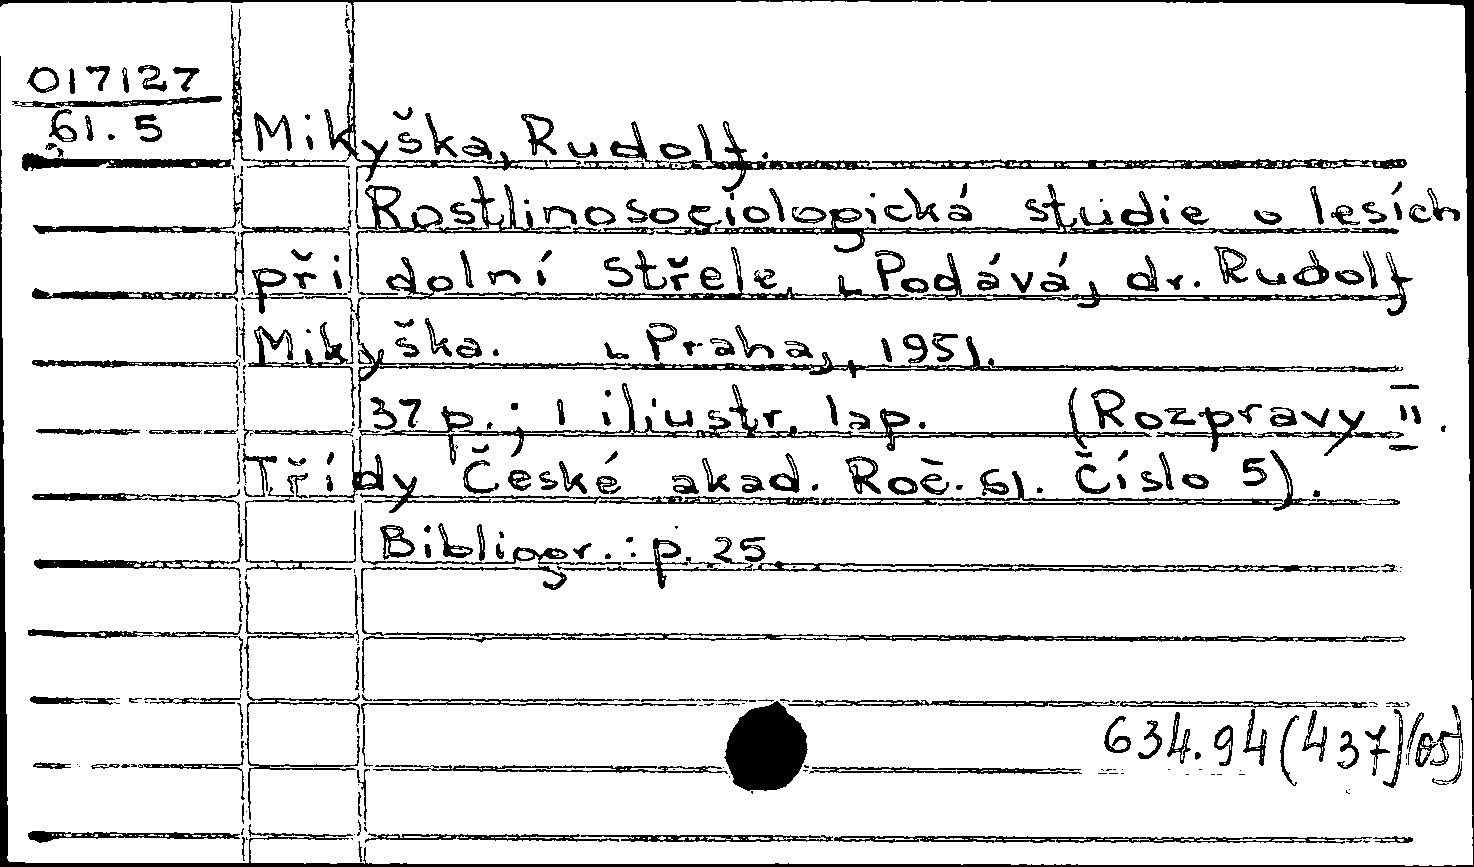 017127
61.5
Mikyška, Rudolf.
Rostlinosociologická studie o lesích
při dolní Střele. [Podává] dr. Rudolf
Mikyška. [Praha], 1951.
37 p.; 1 iliustr. lap. (Rozpravy II.
Třídy České akad. Roč. 61. Číslo 5).
Bibliogr.: p. 25.
634.94(437)(05)